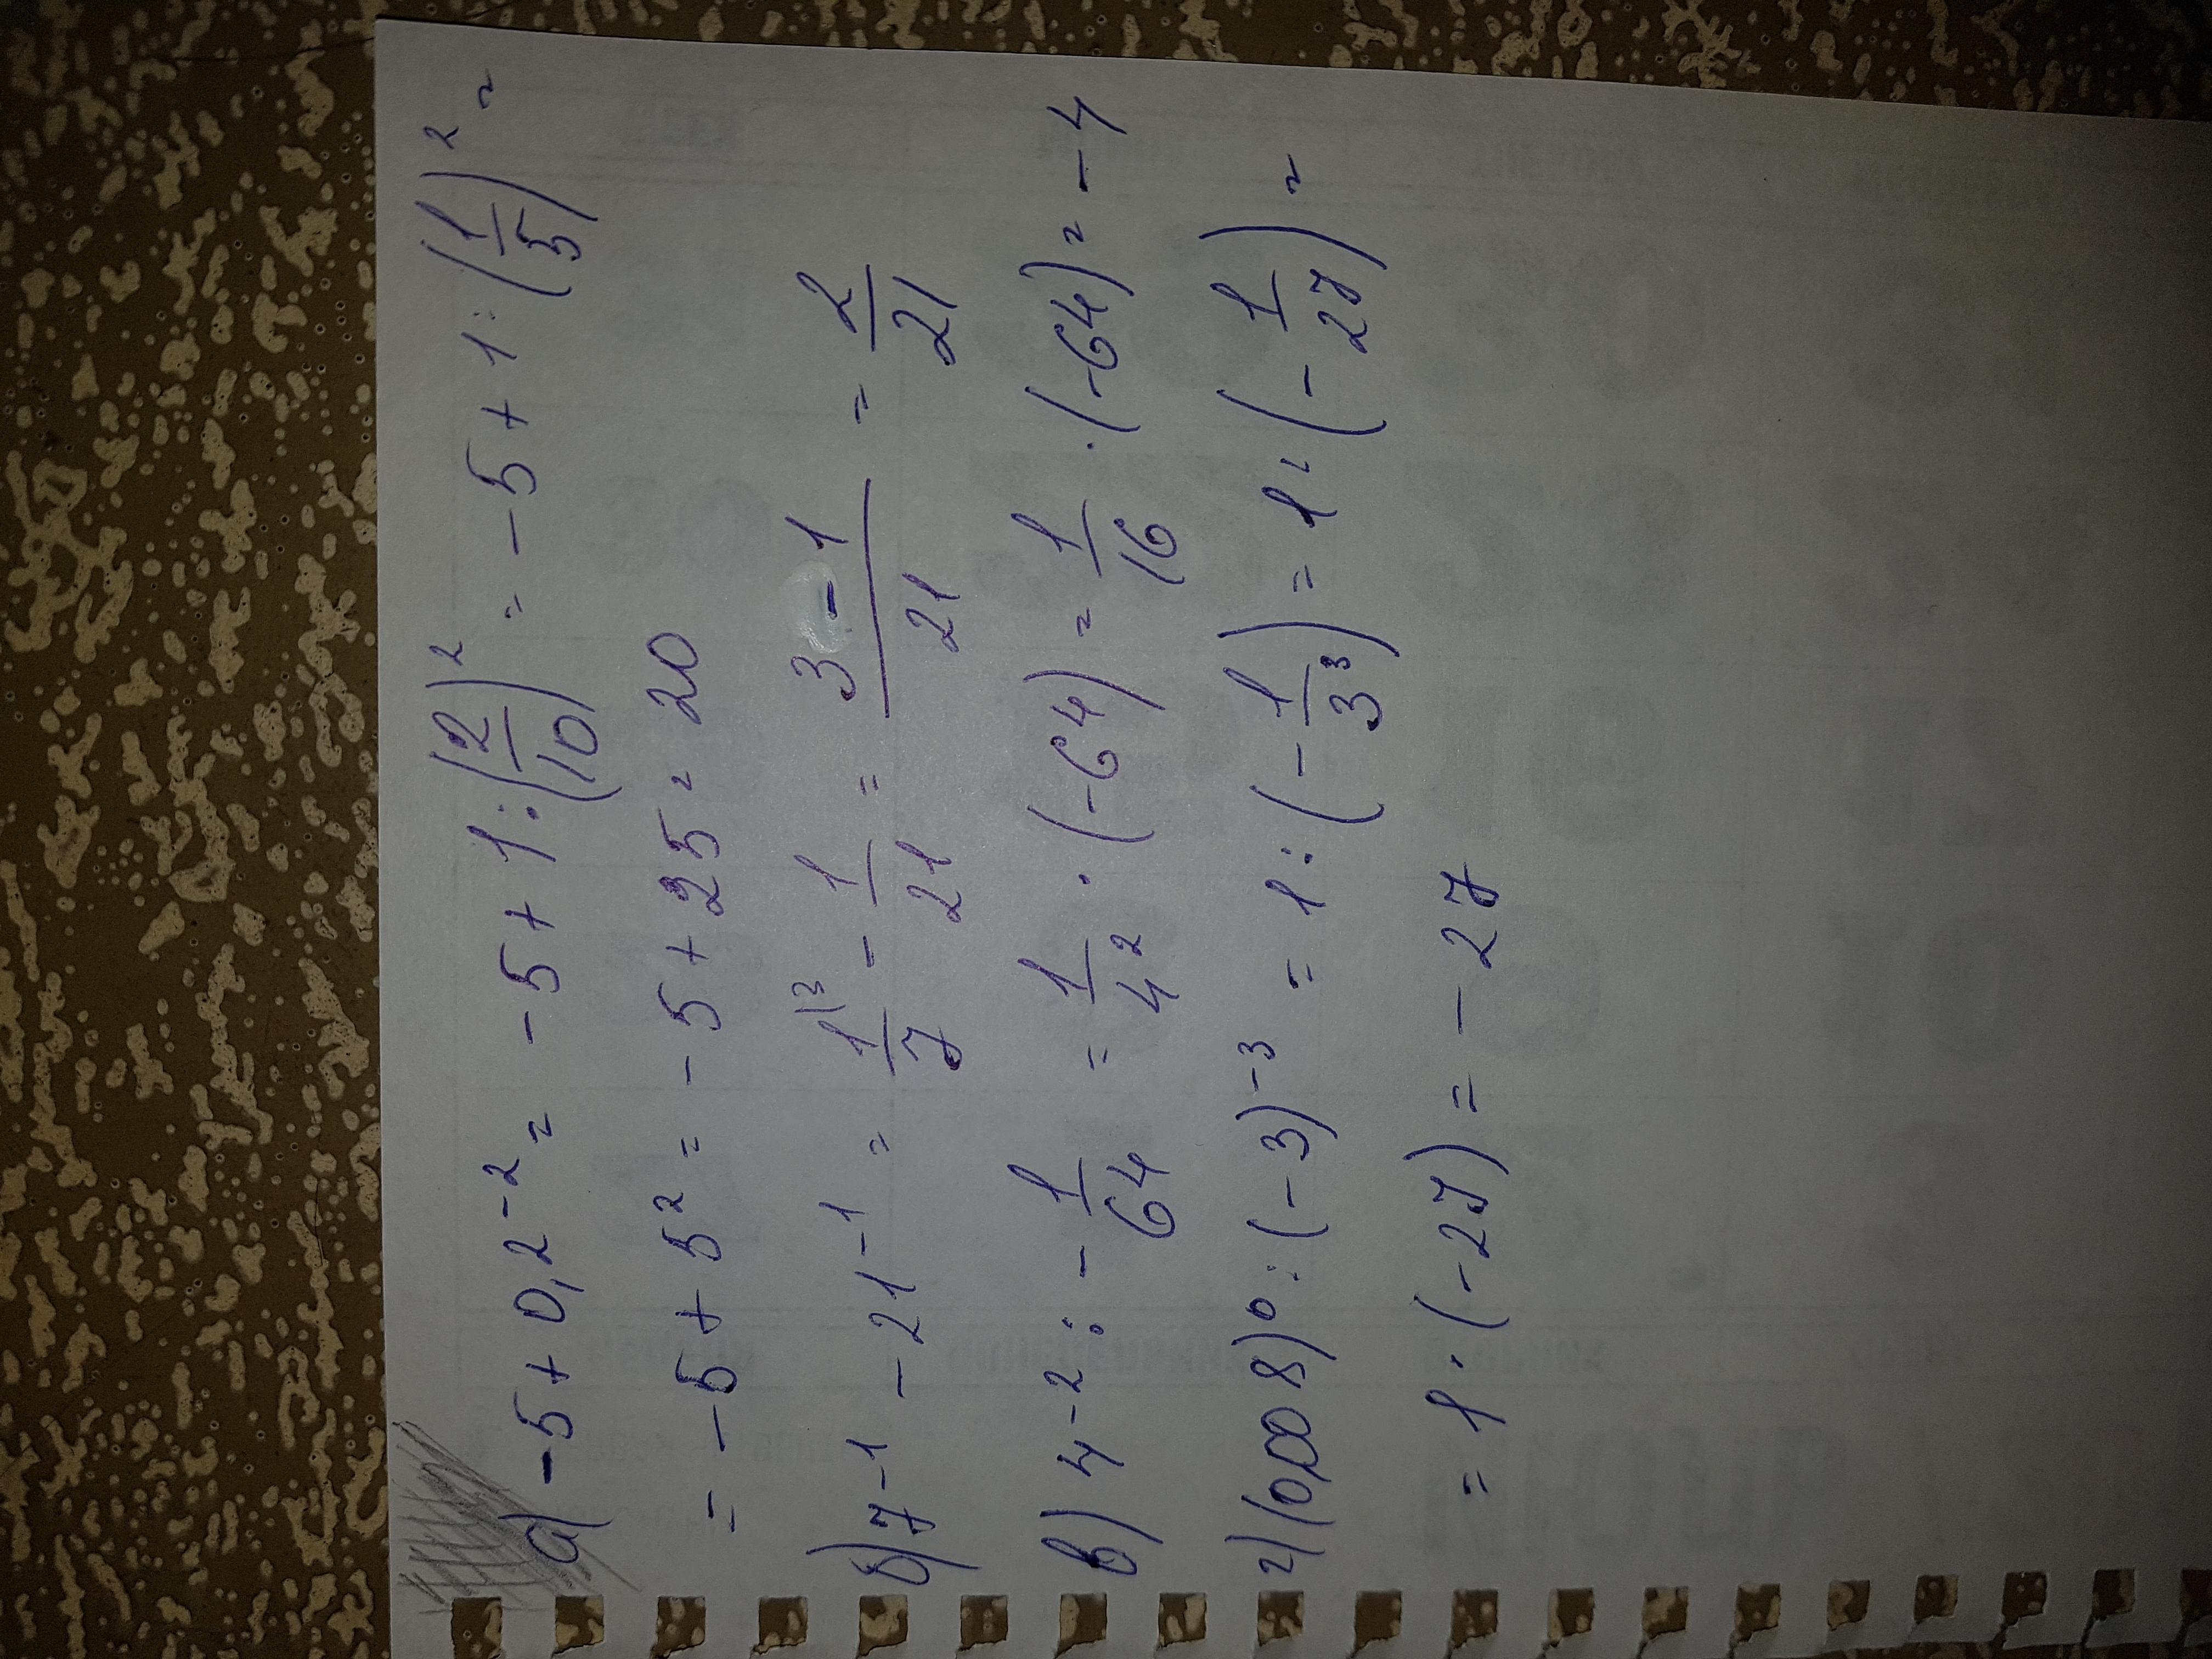 а) -5 + 0,2⁻² = -5 + 1 : (2/10)² = -5 + 1 : (1/5)² =
= -5 + 5² = -5 + 25 = 20
б) 7⁻¹ - 21⁻¹ = 1/7 |3 - 1/21 = 3 - 1/21 = 2/21
в) 4⁻² : -1/64 = 1/4² · (-64) = 1/16 · (-64) = -4
г) (0,008)⁰ : (-3)⁻³ = 1 : (-1/3³) = 1 : (-1/27) =
= 1 · (-27) = -27